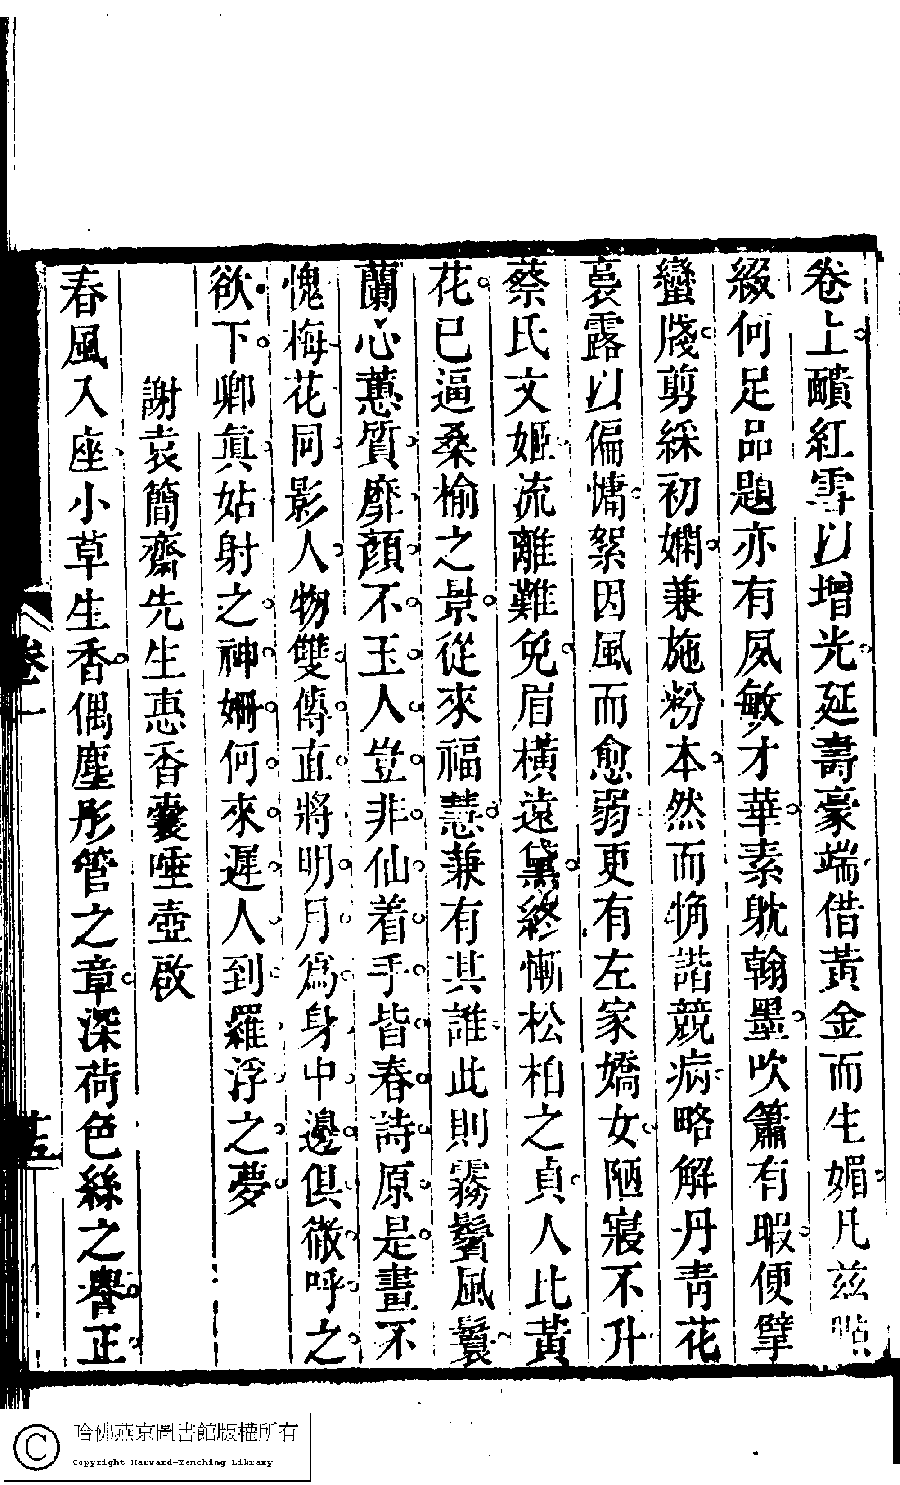 卷上靧紅雪以增光延壽豪端借黃金而生媚凡茲點
綴何足品題亦有夙敏才華素躭翰墨吹簫有暇便擘
蠻牋剪綵初嫻兼施粉本然而觕諧競病略解丹青花
裛露以偏慵絮因風而愈弱更有左家嬌女陋寢不升
蔡氏文姬流離難免眉橫遠黛終慚松柏之貞人比黃
花已逼桑榆之景從來福慧兼有其誰此則霧鬢風鬟
蘭心蕙質靡顏不玉人豈非仙着手皆春詩原是畫不
愧梅花同影人物雙傳直將明月爲身中邊俱徹呼之
欲下卿眞姑射之神姍何來遲人到羅浮之夢
謝袁簡齋先生惠香囊唾壺啟
春風入座小草生香偶塵彤管之章深荷色絲之譽正
卷一
十五
哈佛燕京圖書館版權所有
Copyright Harvard-Yenching Library